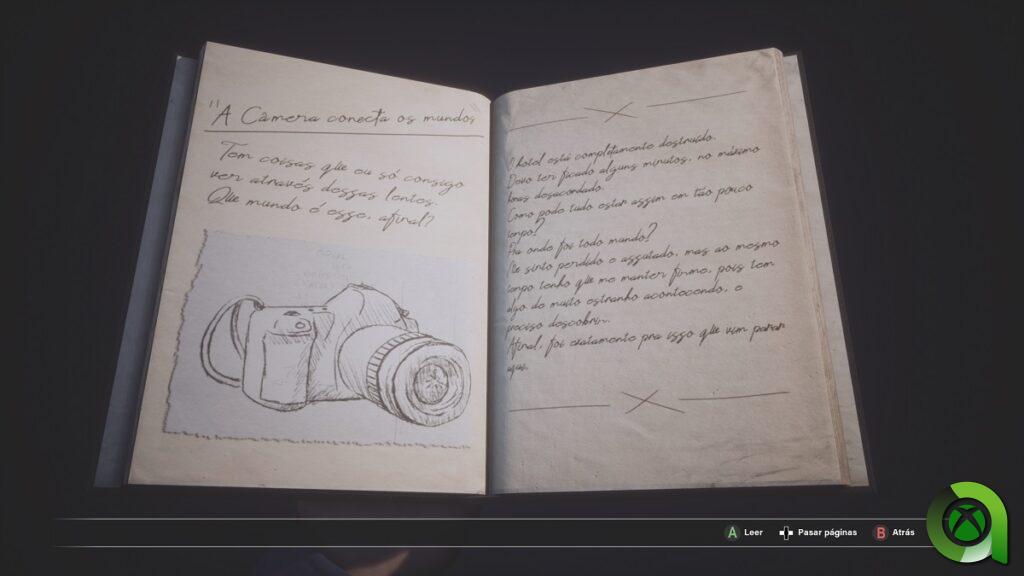 "A Câmera conecta os mundos
Tem coisas que eu só consigo
ver através dessas lentes.
Que mundo é esse, afinal?
O hotel está completamente destruído.
Devo ter ficado alguns minutos, no máximo
horas desacordado.
Como pode tudo estar assim em tão pouco
tempo?
Pra onde foi todo mundo?
Me sinto perdido e assutado, mas ao mesmo
tempo tenho que me manter firme, pois tem
algo de muito estranho acontecendo, e
preciso descobrir.
Afinal, foi exatamente pra isso que vim parar
aqui.
A Leer
Pasar páginas
B Atrás